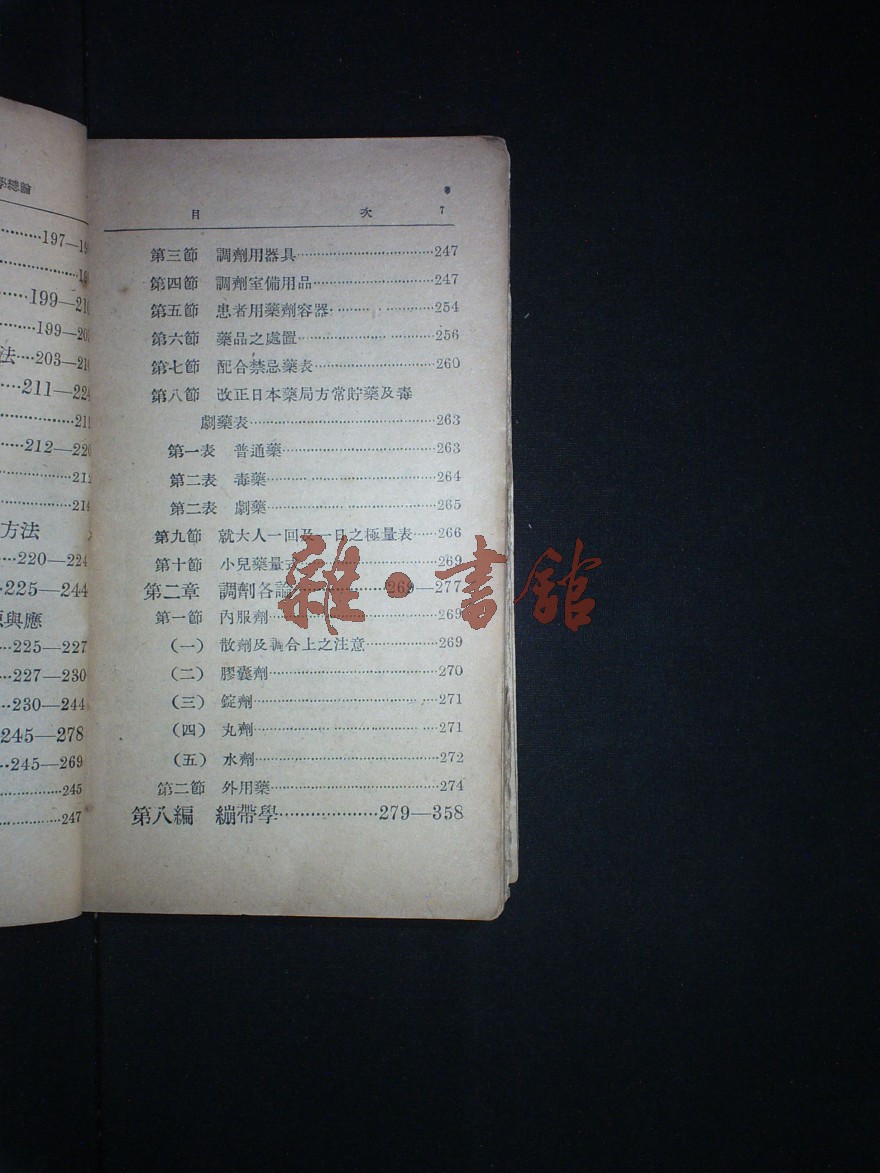 學總論
197—19
199—210
199—20
法…203—210
211—224
211
212—220
212
214
方法
220—224
225—244
與應
225—227
227—230
230—244
245—278
245—269
245
247
目 次 7
第三節 調劑用器具…………247
第四節 調劑室備用品…………247
第五節 患者用藥劑容器…………254
第六節 藥品之處置…………256
第七節 配合禁忌藥表…………260
第八節 改正日本藥局方常貯藥及毒
劇藥表…………263
第一表 普通藥…………263
第二表 毒藥…………264
第二表 劇藥…………265
第九節 就大人一回及一日之極量表……266
第十節 小兒藥量式…………269
第二章 調劑各論…………269—277
第一節 內服劑…………269
(一) 散劑及調合上之注意…………269
(二) 膠囊劑…………270
(三) 錠劑…………271
(四) 丸劑…………271
(五) 水劑…………272
第二節 外用藥…………274
第八編 繃帶學…………279—358
雜·書館